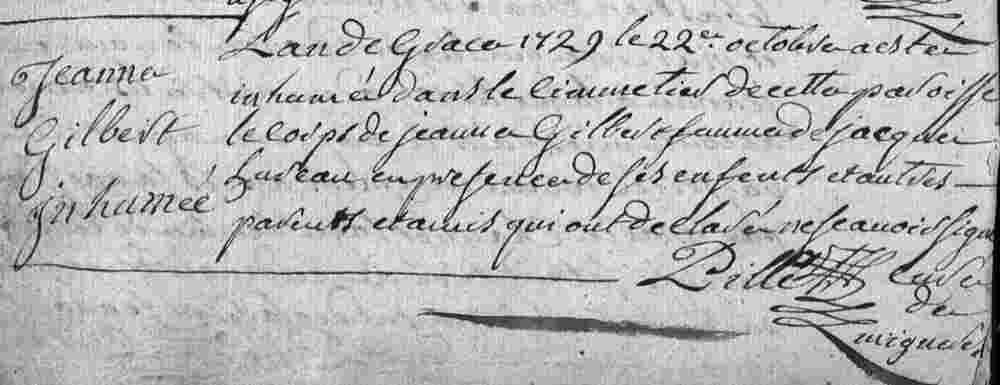 Jeanne
Gilbert
inhumée
L'an de Grace 1729 le 22e octobre a esté
inhumée dans le cimmetier de cette paroisse
le corps de jeanne Gilbert femme de jacques
en presence de ses enfents et autres
parents et amis qui ont declaré ne scavoir signer
Pillet curé
de